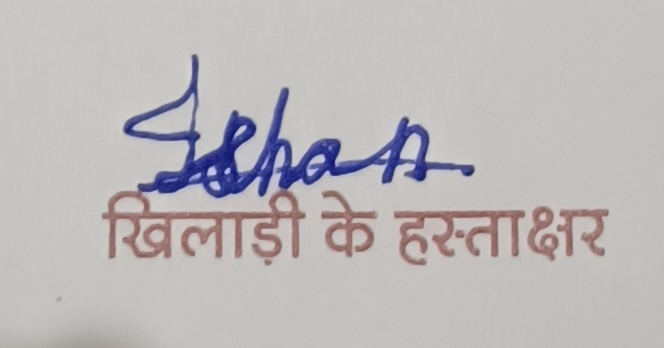 Ishan
खिलाड़ी के हस्ताक्षर